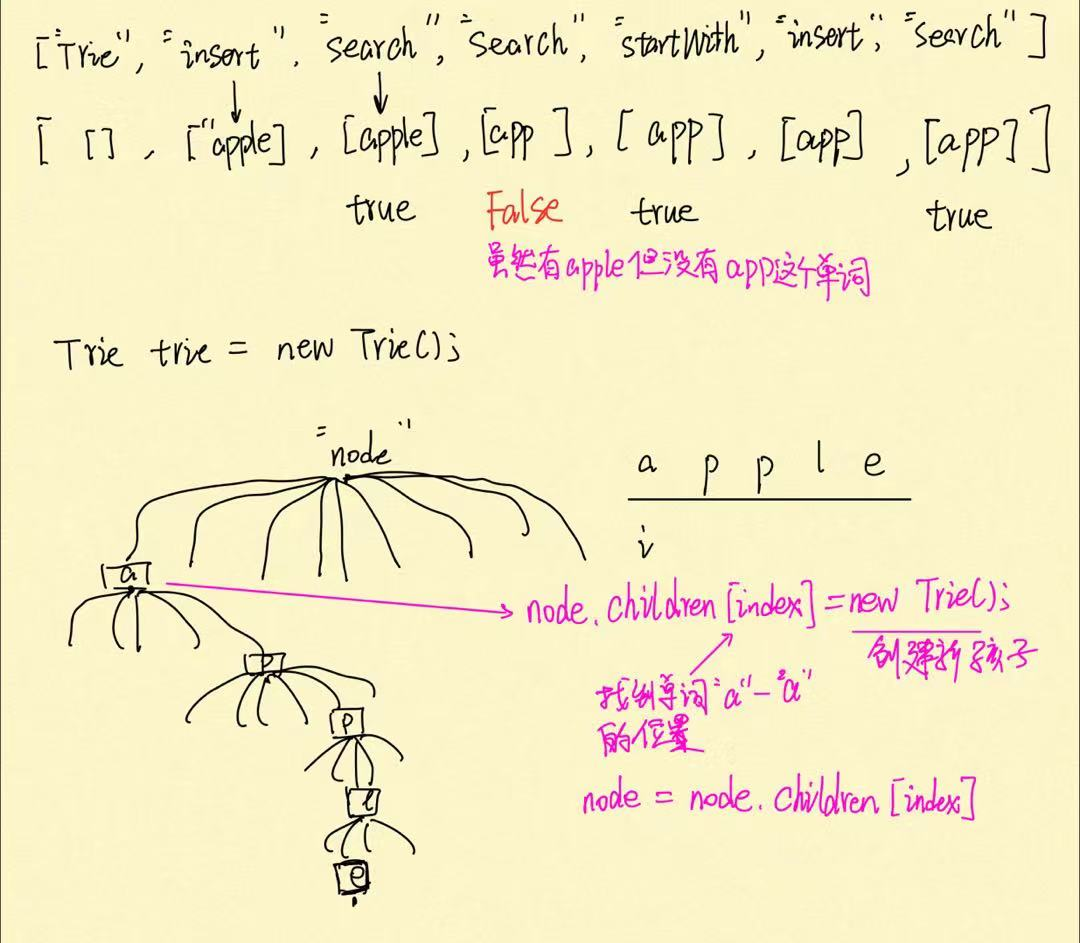 ["Trie", "insert", "search", "search", "startWith", "insert", "search"]
[ [], ["apple], [apple], [app], [app], [app], [app]]
true False true true
虽然有apple但没有app这个单词
Trie trie = new Trie();
"node"
a p p l e
i
a
node.children[index]=new Trie();
创建新孩子
p
找到单词"a"-"a"
的位置
p
node = node.children[index]
l
e